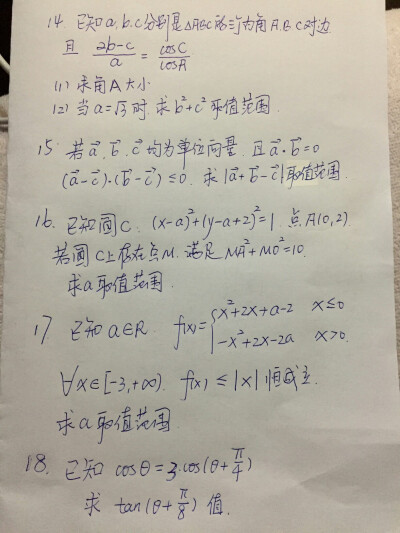 14. 已知 a.b.c 分别是△ABC的三个内角A.B.C对边
且 (2b-c)/a = cosC/cosA
(1) 求角A大小
(2) 当a=√3时. 求b²+c²取值范围.
15. 若a⃗. b⃗. c⃗均为单位向量. 且a⃗·b⃗=0
(a⃗-c⃗)·(b⃗-c⃗)≤0. 求|a⃗+b⃗-c⃗|取值范围.
16. 已知圆C. (x-a)²+(y-a+2)²=1. 点A(0,2)
若圆C上存在点M. 满足MA²+MO²=10.
求a取值范围.
17 已知a∈R. f(x)={x²+2x+a-2 x≤0
-x²+2x-2a x>0.
∀x∈[-3,+∞). f(x)≤|x|恒成立.
求a取值范围
18. 已知 cosθ=3·cos(θ+π/4)
求 tan(θ+π/8) 值.